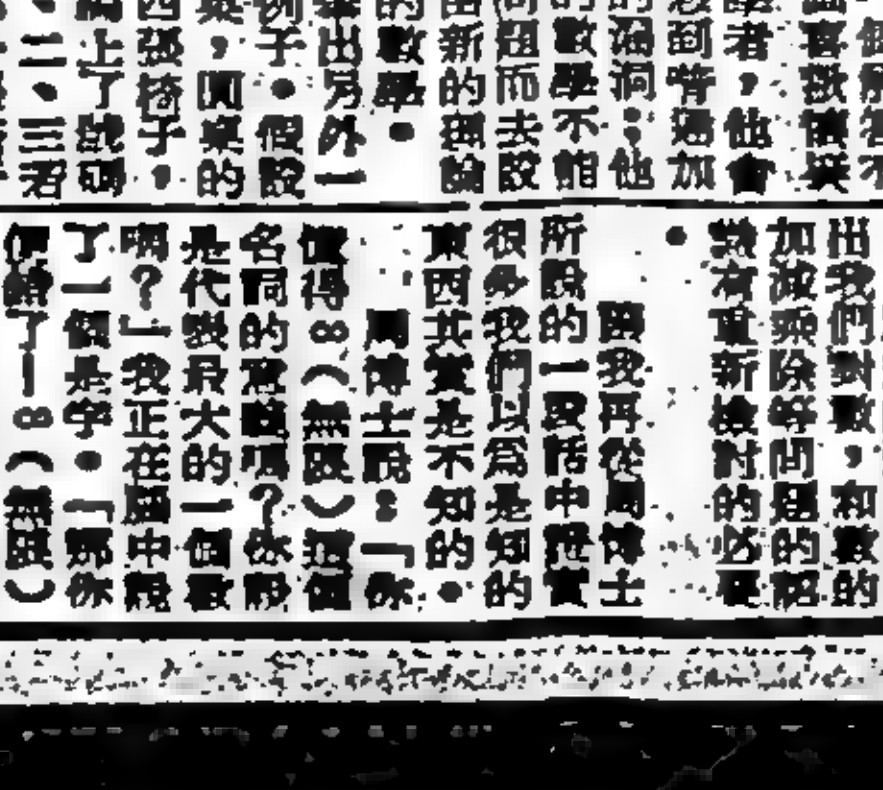 者，他會
到嘗過加
的漏洞；他
的數學不能
問題而去設
出新的理論
的數學。
舉出另外一
例子。假設
桌，圓桌的
四張椅子，
上了號碼
、二、三若
出我們對數，和數的
加減乘除等問題的認
識有重新檢討的必要
。
讓我再從周博士
所說的一段話中證實
很多我們以為是知的
東西其實是不知的。
周博士說：「你
懂得∞（無限）這個
名詞的意義嗎？你說
是代表最大的一個數
嗎？」我正在中說
了一個是字。「那你
便錯了—∞（無限）